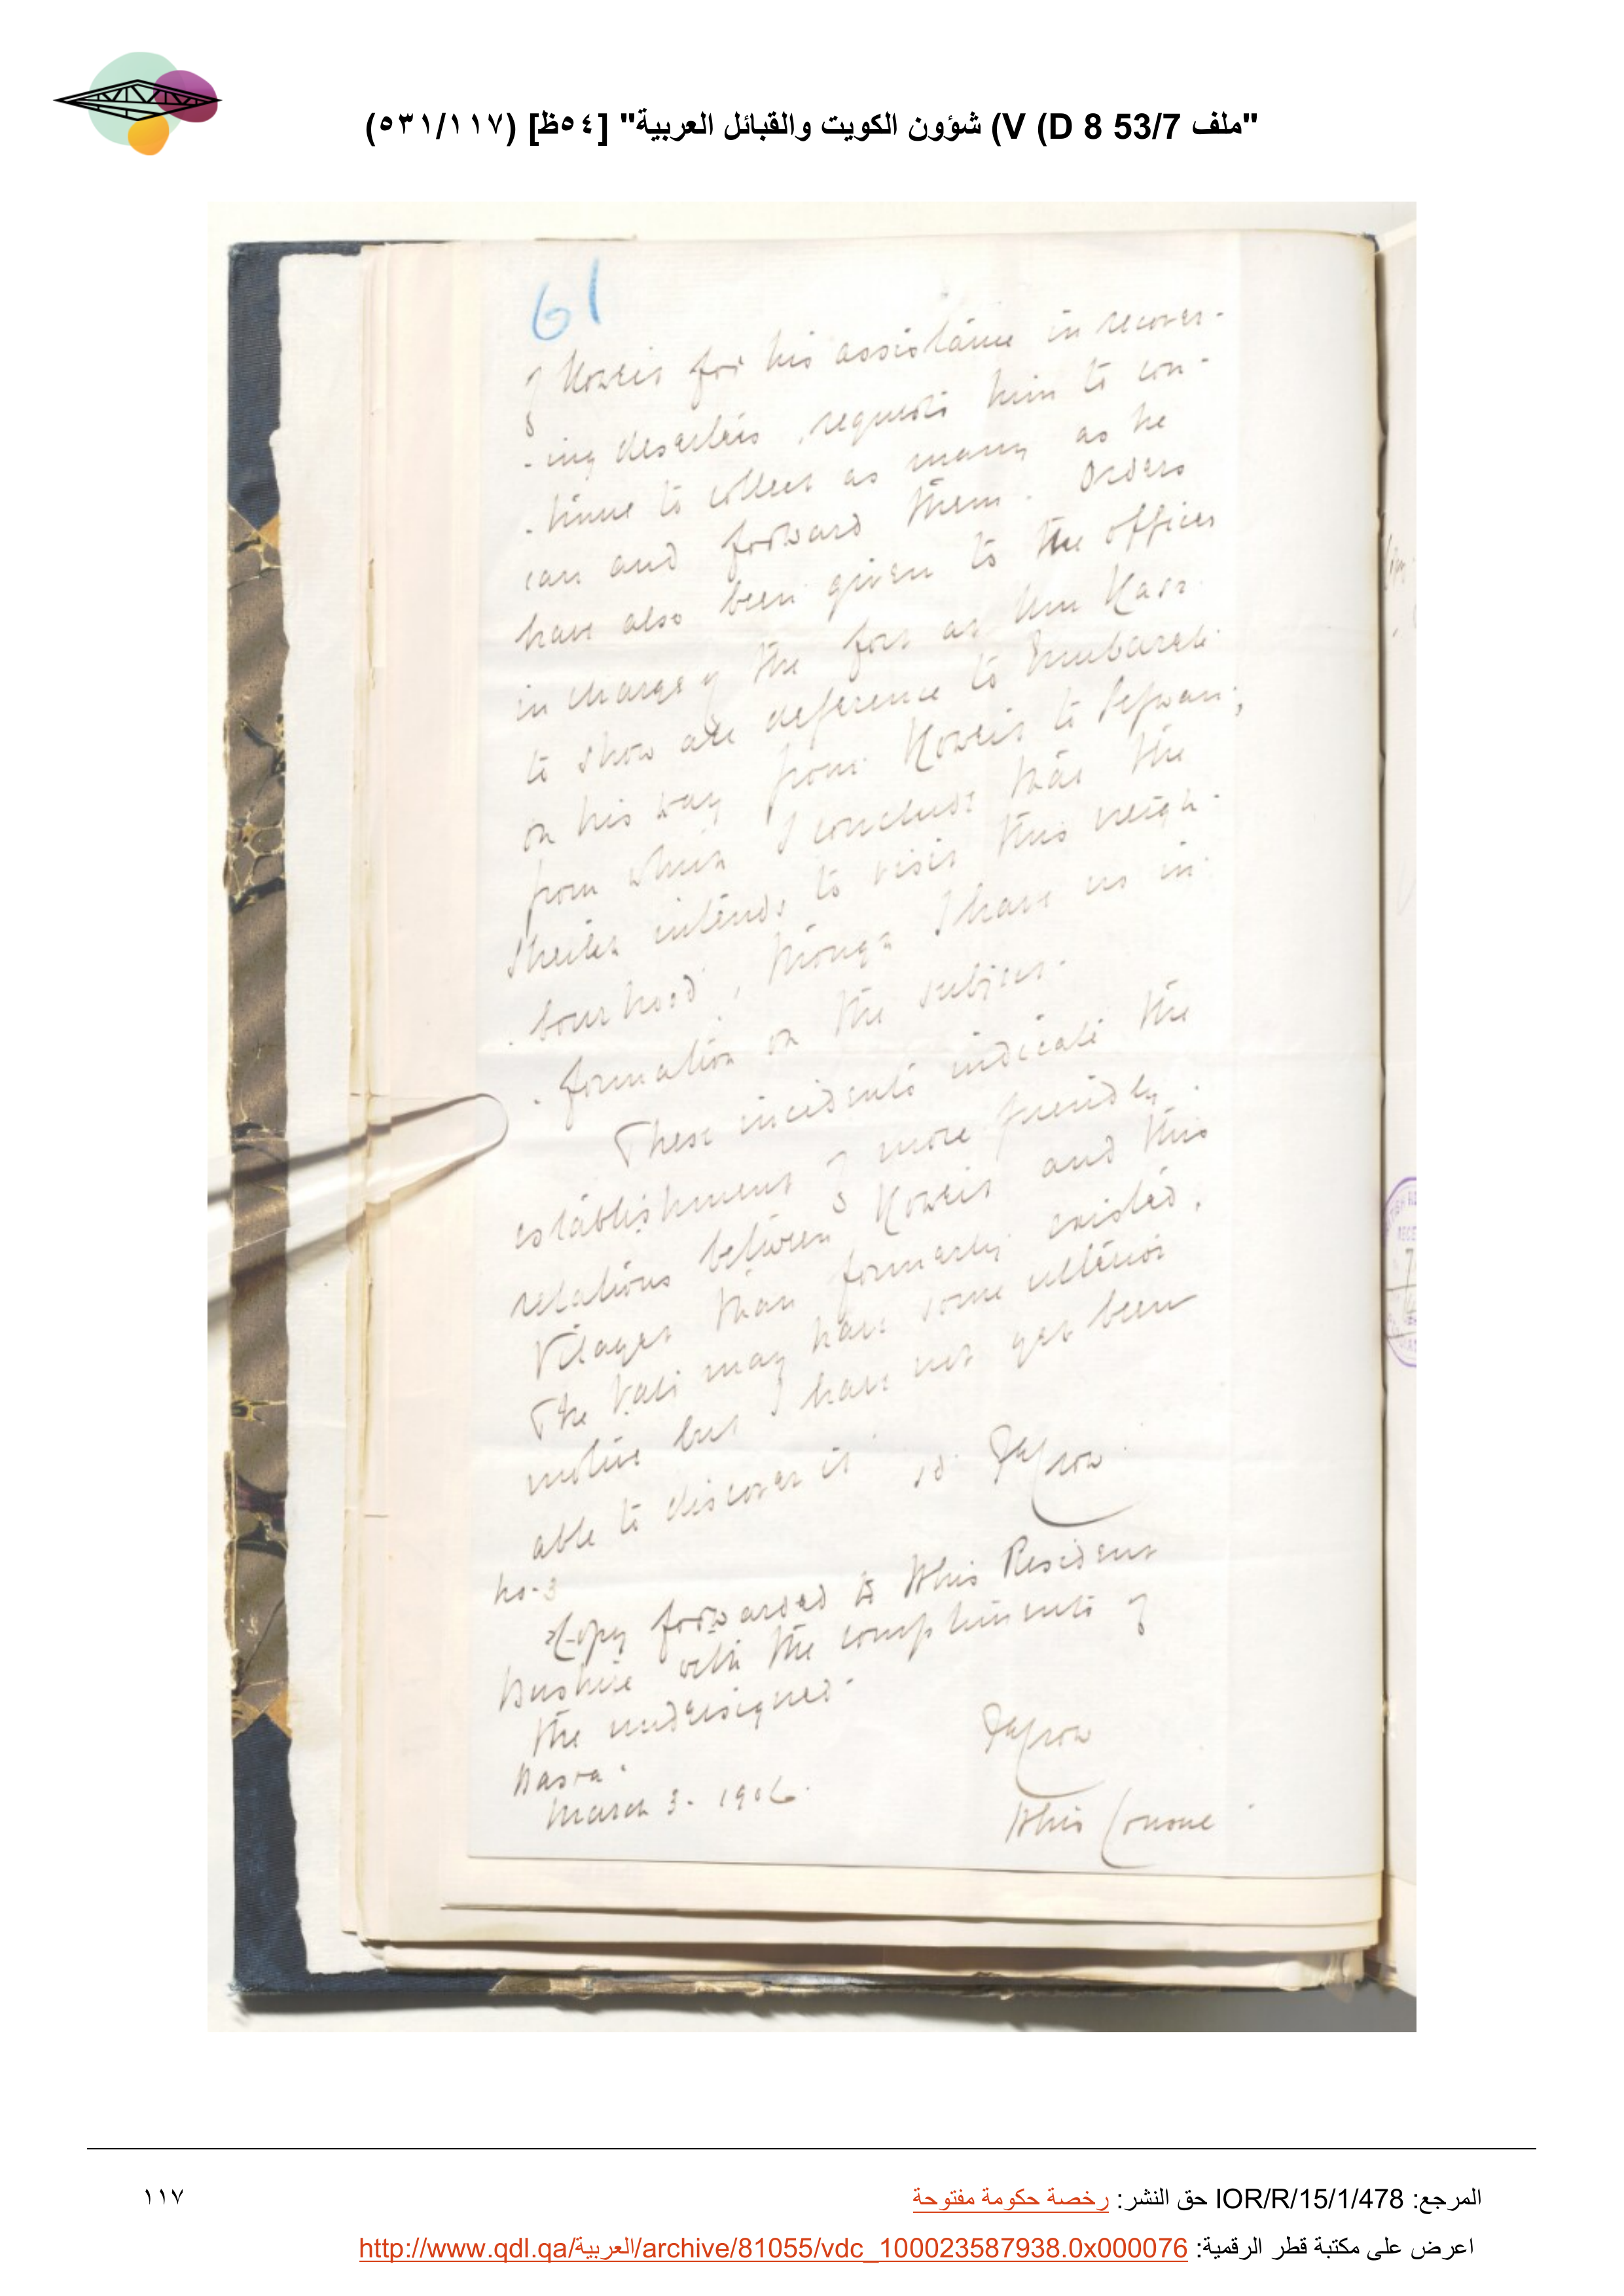 "ملف 53/7 V (D 8) شؤون الكويت والقبائل العربية" [٥٤ظ] (٥٣١/١١٧)
61
of Koweit for his assistance in recover-
-ing deserters, requests him to con-
-tinue to collect as many as he
can and forward them. Orders
have also been given to the officer
in charge of the fort at Um Kasr
to show all deference to Mubarak
on his way from Koweit to Sefwan;
from which I conclude that the
Sheikh intends to visit this neigh-
-bourhood, though I have no in-
-formation on the subject.
These incidents indicate the
establishment of more friendly
relations between Koweit and this
Vilayet than formerly existed.
The Vali may have some ulterior
motive but I have not yet been
able to discover it sd. Crow
No. 3
Copy forwarded to HM's Resident
Bushire with the compliments of
the undersigned.
Crow
Basra.
March 3. 1906.
HM's Consul
المرجع: IOR/R/15/1/478 حق النشر: رخصة حكومة مفتوحة
١١٧
اعرض على مكتبة قطر الرقمية: http://www.qdl.qa/العربية/archive/81055/vdc_100023587938.0x000076